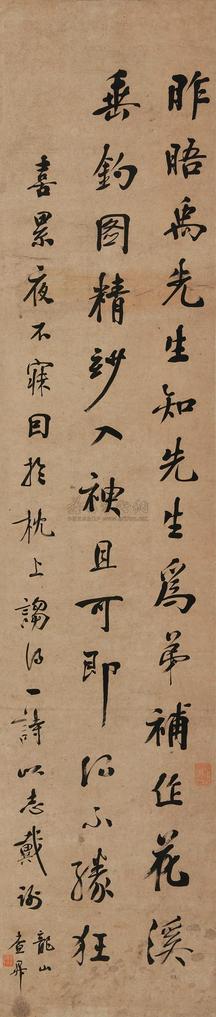 昨晤禹先生知先生爲弟補作花溪
垂釣圖精妙入神且可即得不勝狂
喜累夜不寐因於枕上謅得一詩以志戴謝
龍山
查昇